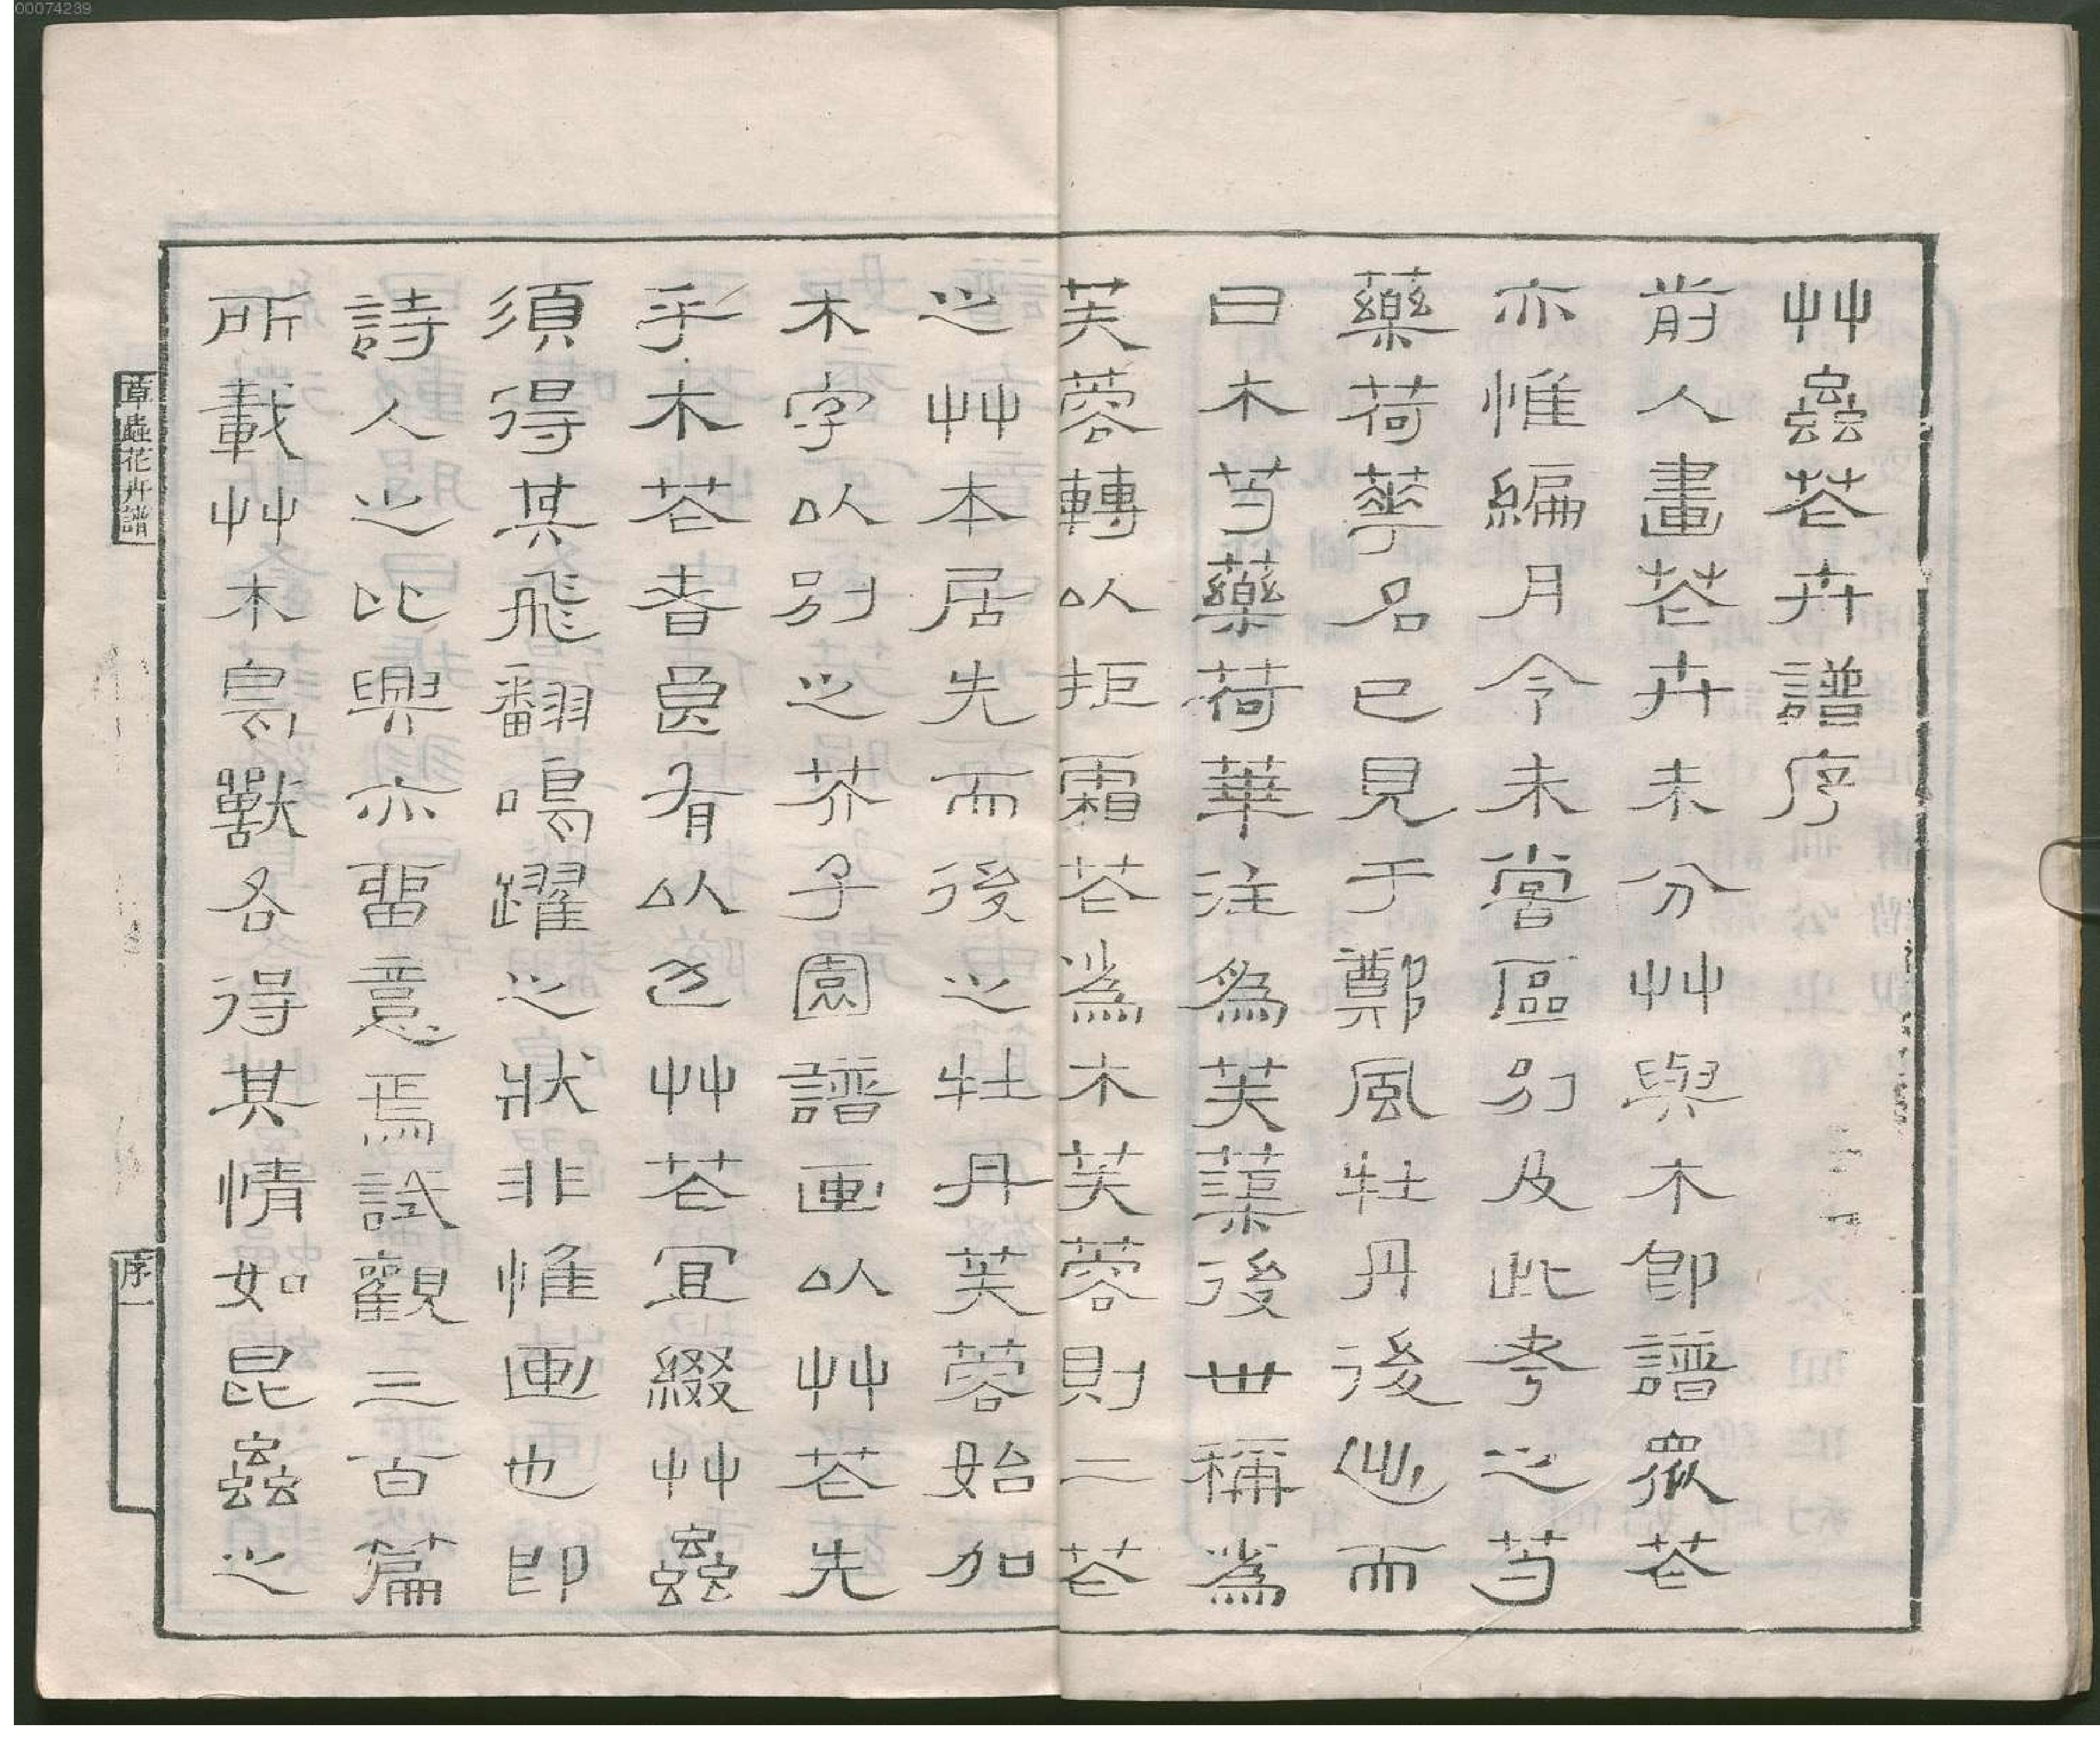 00074239
艸蟲苍卉譜序
前人畫苍卉未分艸與木卽譜眾苍
亦惟編月令未嘗區別及此考之芍
藥荷華名已見于鄭風牡丹後出而
曰木芍藥荷華注為芙蕖後世稱為
芙蓉轉以拒霜苍為木芙蓉則二苍
之艸本居先而後之牡丹芙蓉始加
木字以別之芥子園譜画以艸苍先
乎木苍者良有以也艸苍宜綴艸蟲
須得其飛翻鳴躍之狀非惟画也卽
詩人之比興亦畱意焉試觀三百篇
所載艸木鳥獸各得其情如昆蟲之
草蟲花卉譜
序一